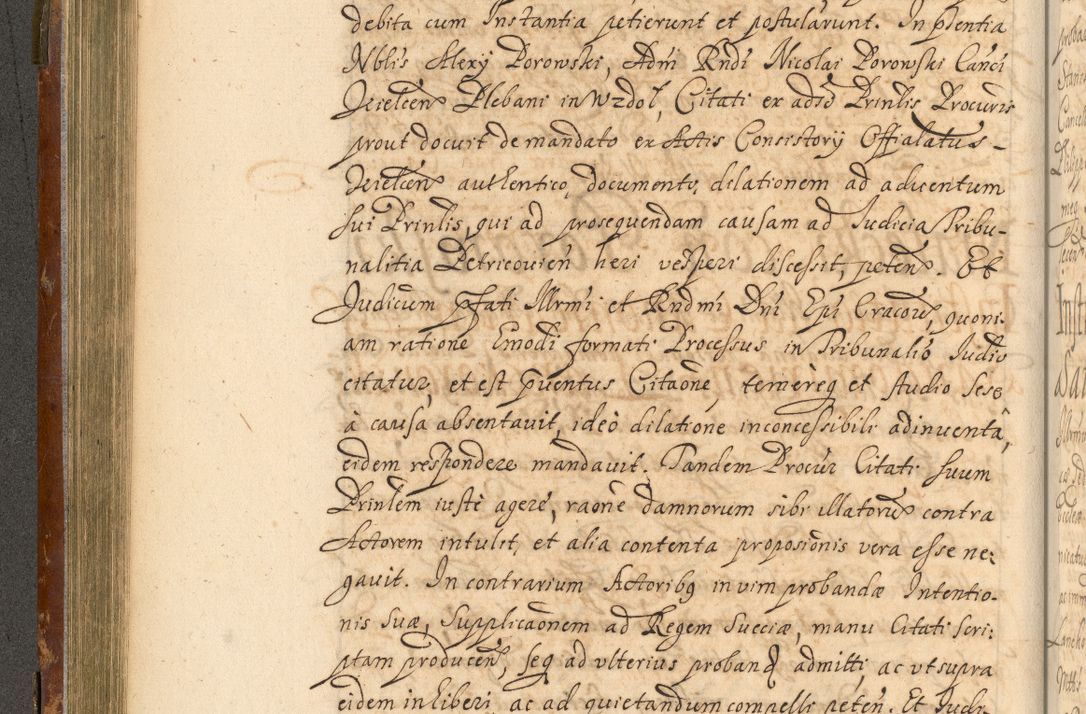 debita cum Instantia petierunt et postularunt. In pñtia
Nblis Alexy Porowski, Adm̃ Rñdi Nicolai Porowski Canci
Kielceñ Plebani in Wzdoł, Citati ex adsõ Prinlis Procuris
prout docuit de mandato ex Actis Consistorÿ Offialatus
Kielceñ authentico, documento, dilationem ad aducentum
sui Prinlis, qui ad prosequendam causam ad Iudicia Tribu-
nalitia Petricovieñ heri vesperi discessit, peteñ. Et
Judicium pfati Illrmi et Rndmi Dni Epi Cracovieñ, quoni-
am ratione Emodi formati Processus in Tribunalio Iudio
citatur, et est pventus Citaõne, temereq et studio sese
à causa absentavit, ideo dilatione inconcessibili adinventâ,
eidem respondere mandavit. Tandem Procur Citati suum
Prinlem iuste agere, raoñe damnorum sibi illatorum contra
Actorem intulit, et alia contenta proposiõnis vera esse ne:
gavit. In contrarium Actoribq in vim probandæ Intentio-
nis suæ, Supplicaõnem ad Regem Sueciæ, manu Citati scri:
ptam produceñ, seq ad vlterius proband admitti, ac vt supra
eidem inhiberi ac ad quietandum compelli peteñ. Et Iudi-